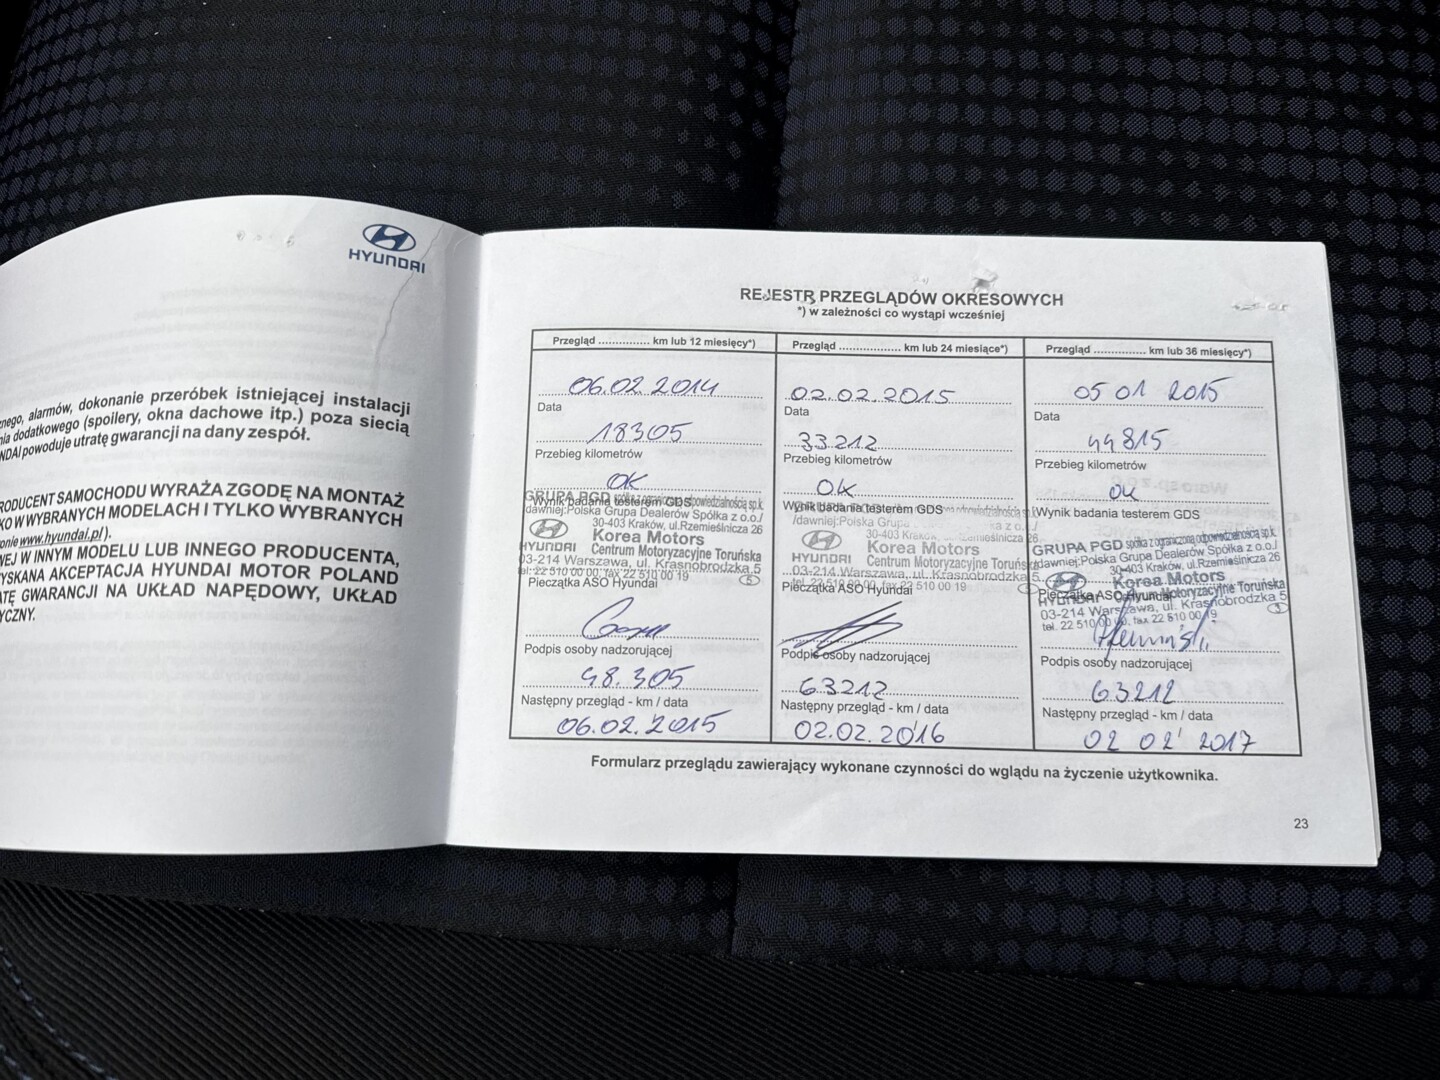 HYUNDAI
cznego, alarmów, dokonanie przeróbek istniejącej instalacji
dodatkowego (spoilery, okna dachowe itp.) poza siecią
powoduje utratę gwarancji na dany zespół.
PRODUCENT SAMOCHODU WYRAŻA ZGODĘ NA MONTAŻ
W WYBRANYCH MODELACH I TYLKO WYBRANYCH
www.hyundai.pl/).
W INNYM MODELU LUB INNEGO PRODUCENTA,
AKCEPTACJA HYUNDAI MOTOR POLAND
GWARANCJI NA UKŁAD NAPĘDOWY, UKŁAD
REJESTR PRZEGLĄDÓW OKRESOWYCH
*) w zależności co wystąpi wcześniej
Przegląd .............. km lub 12 miesięcy*)
06.02.2014
Data
18305
Przebieg kilometrów
OK
Wynik badania testerem GDS
GRUPA PGD spółka z ograniczoną odpowiedzialnością sp.k.
/dawniej:Polska Grupa Dealerów Spółka z o.o./
30-403 Kraków, ul.Rzemieślnicza 26
Korea Motors
HYUNDAI Centrum Motoryzacyjne Toruńska
03-214 Warszawa, ul. Krasnobrodzka 5
tel. 22 510 00 00, fax 22 510 00 19 5
Pieczątka ASO Hyundai
Podpis osoby nadzorującej
48.305
Następny przegląd - km / data
06.02.2015
Przegląd ................. km lub 24 miesiące*)
02.02.2015
Data
33212
Przebieg kilometrów
OK
Wynik badania testerem GDS
/dawniej:Polska Grupa
30-403 Kraków, ul.Rzemieślnicza 26
Korea Motors
HYUNDAI Centrum Motoryzacyjne Toruńska
03-214 Warszawa, ul. Krasnobrodzka 5
tel. 22 510 00 00, fax 22 510 00 19
Pieczątka ASO Hyundai
Podpis osoby nadzorującej
63212
Następny przegląd - km / data
02.02.2016
Przegląd .............. km lub 36 miesięcy*)
05 01 2015
Data
44815
Przebieg kilometrów
OK
Wynik badania testerem GDS
GRUPA PGD spółka z ograniczoną odpowiedzialnością sp.k.
/dawniej:Polska Grupa Dealerów Spółka z o.o./
30-403 Kraków, ul.Rzemieślnicza 26
Korea Motors
HYUNDAI Centrum Motoryzacyjne Toruńska
Pieczątka ASO Hyundai
03-214 Warszawa, ul. Krasnobrodzka 5
tel. 22 510 00 00, fax 22 510 00 19
Podpis osoby nadzorującej
63212
Następny przegląd - km / data
02 02 2017
Formularz przeglądu zawierający wykonane czynności do wglądu na życzenie użytkownika.
23